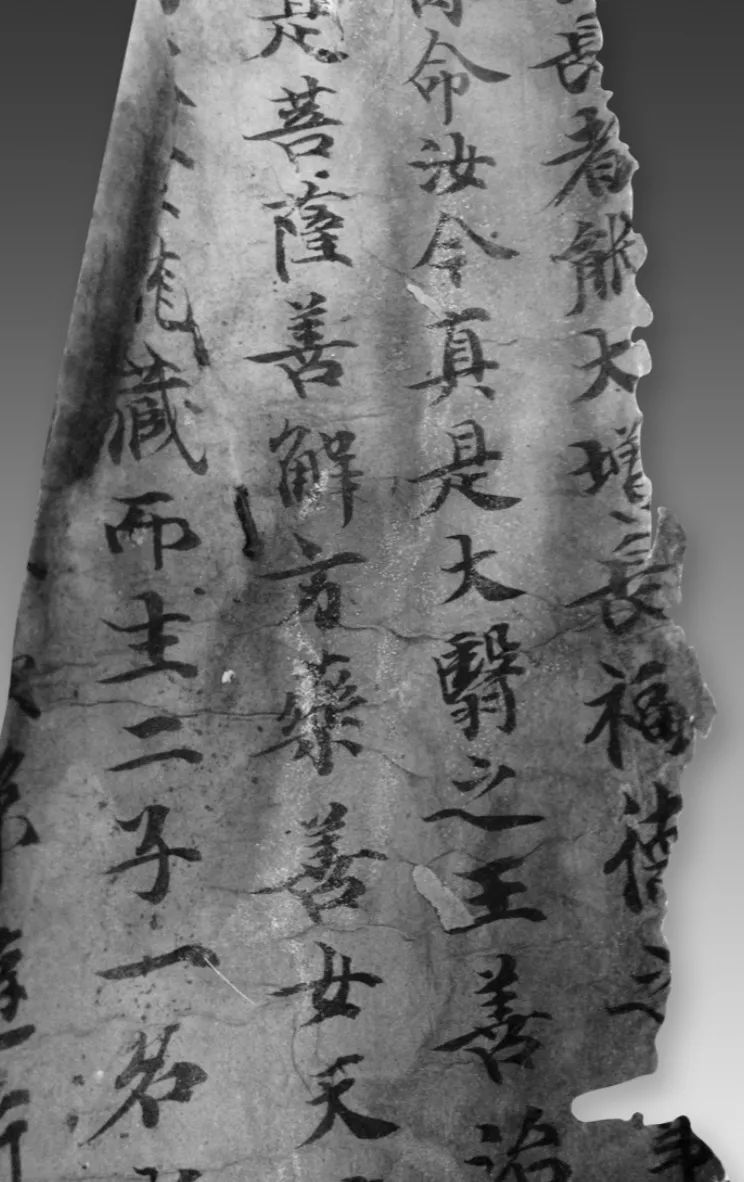 長者能大增長福德之事
命汝今真是大翳之王善治
是菩薩善解方藥善女天
龍藏而生二子一名